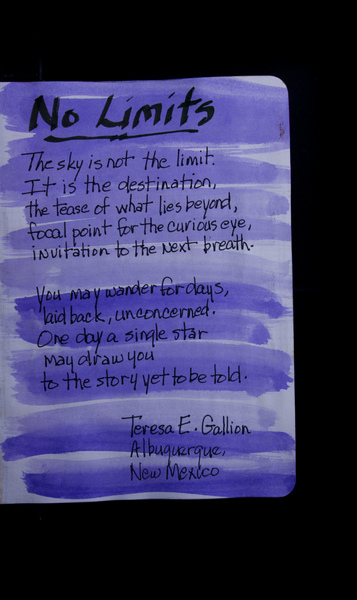 No Limits
The sky is not the limit.
It is the destination,
the tease of what lies beyond,
focal point for the curious eye,
invitation to the next breath.
You may wander for days,
laid back, unconcerned.
One day a single star
may draw you
to the story yet to be told.
Teresa E. Gallion
Albuquerque,
New Mexico